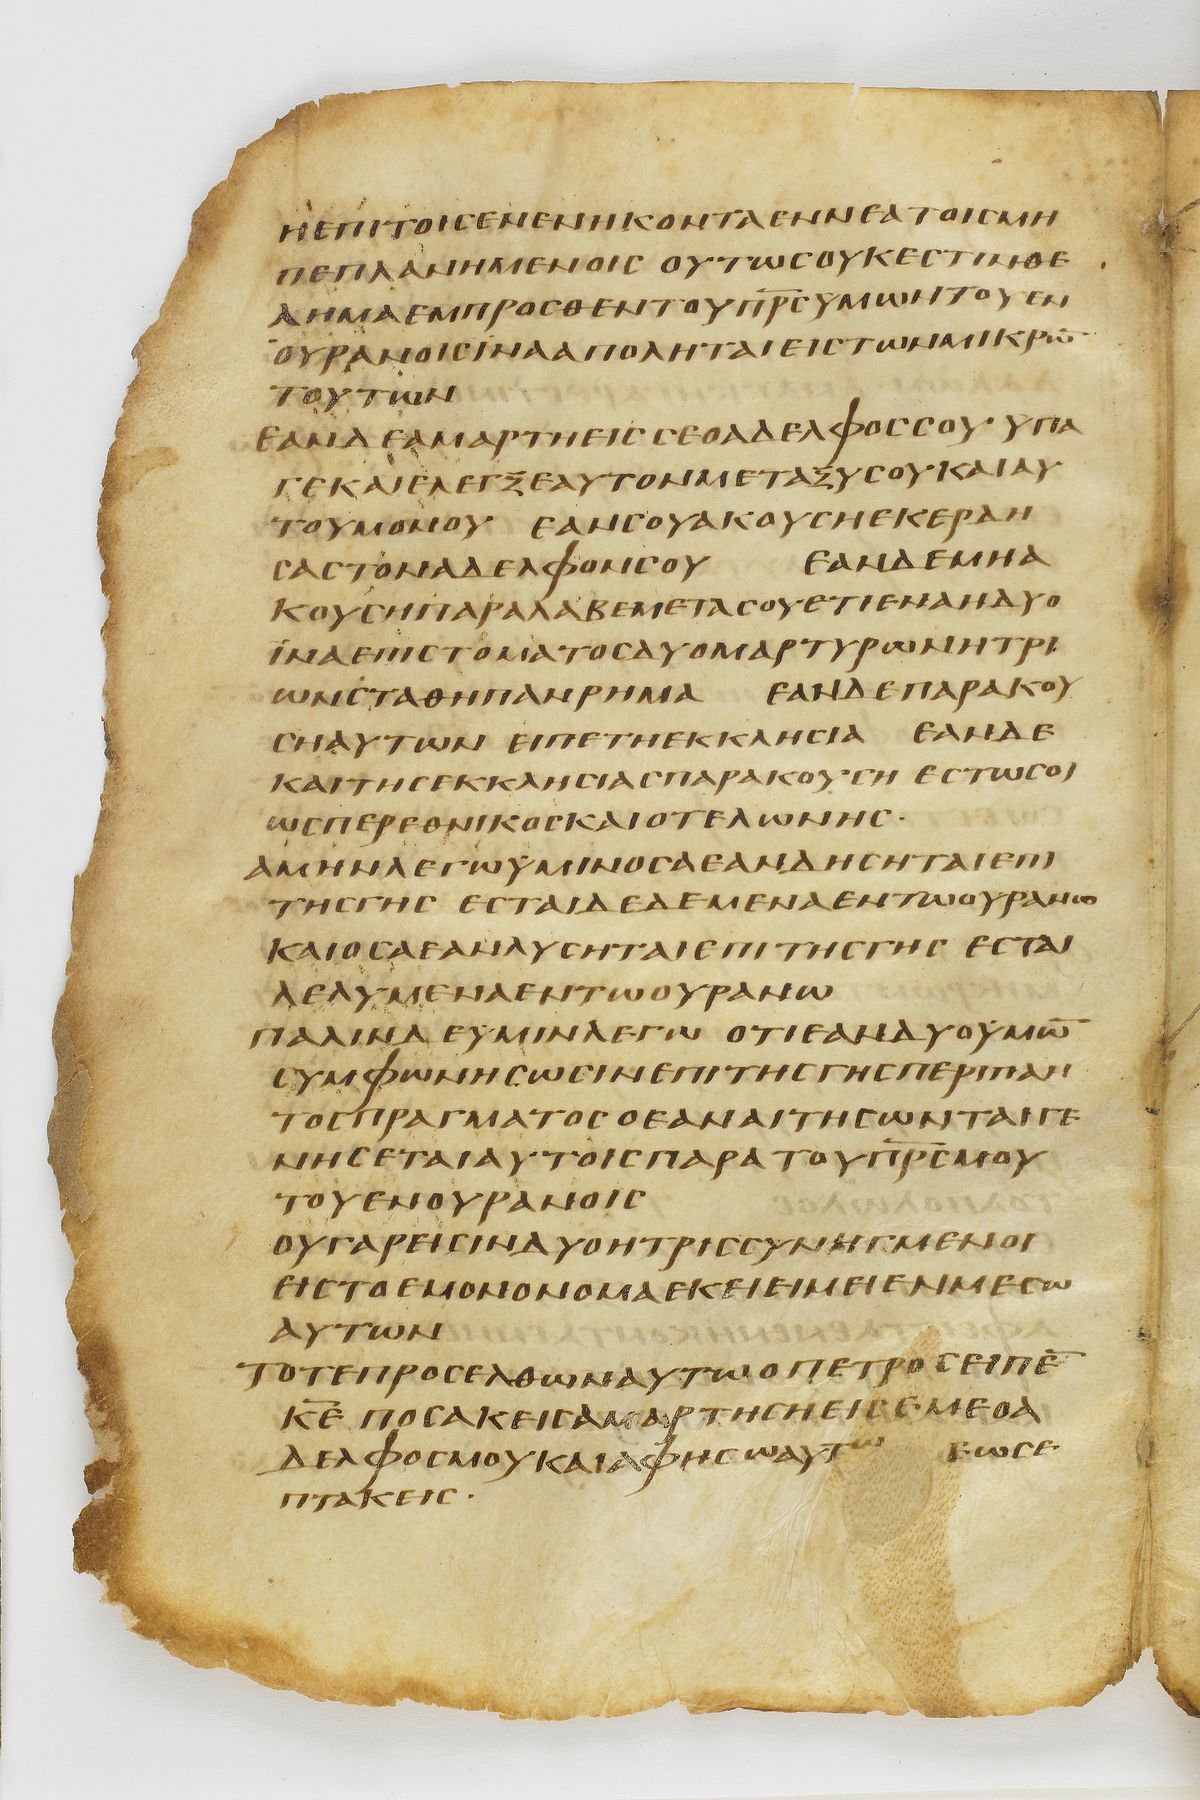 ΗΕΠΙΤΟΙСΕΝΕΝΗΚΟΝΤΑΕΝΝΕΑΤΟΙСΜΗ
ΠΕΠΛΑΝΗΜΕΝΟΙС ΟΥΤωСΟΥΚΕСΤΙΝΘΕ
ΛΗΜΑΕΜΠΡΟСΘΕΝΤΟΥΠ̅Ρ̅С̅ΥΜωΝΤΟΥΕΝ
ΟΥΡΑΝΟΙСΪΝΑΑΠΟΛΗΤΑΙΕΙСΤωΝΜΙΚΡω̅
ΤΟΥΤωΝ
ΕΑΝΔΕΑΜΑΡΤΗΕΙССΕΟΑΔΕΛΦΟССΟΥ ΥΠΑ
ΓΕΚΑΙΕΛΕΓΞΕΑΥΤΟΝΜΕΤΑΞΥСΟΥΚΑΙΑΥ
ΤΟΥΜΟΝΟΥ ΕΑΝСΟΥΑΚΟΥСΗΕΚΕΡΔΗ
СΑСΤΟΝΑΔΕΛΦΟΝСΟΥ ΕΑΝΔΕΜΗΑ
ΚΟΥСΗΠΑΡΑΛΑΒΕΜΕΤΑСΟΥΕΤΙΕΝΑΗΔΥΟ
ΪΝΑΕΠΙСΤΟΜΑΤΟСΔΥΟΜΑΡΤΥΡωΝΗΤΡΙ
ωΝСΤΑΘΗΠΑΝΡΗΜΑ ΕΑΝΔΕΠΑΡΑΚΟΥ
СΗΑΥΤωΝ ΕΙΠΕΤΗΕΚΚΛΗСΙΑ ΕΑΝΔΕ
ΚΑΙΤΗСΕΚΚΛΗСΙΑСΠΑΡΑΚΟΥСΗ ΕСΤωСΟΙ
ωСΠΕΡΕΘΝΙΚΟСΚΑΙΟΤΕΛωΝΗС·
ΑΜΗΝΛΕΓωΫΜΙΝΟСΑΕΑΝΔΗСΗΤΑΙΕΠΙ
ΤΗСΓΗС ΕСΤΑΙΔΕΔΕΜΕΝΑΕΝΤωΟΥΡΑΝω
ΚΑΙΟСΑΕΑΝΛΥСΗΤΑΙΕΠΙΤΗСΓΗС ΕСΤΑΙ
ΛΕΛΥΜΕΝΑΕΝΤωΟΥΡΑΝω
ΠΑΛΙΝΔΕΥΜΙΝΛΕΓω ΟΤΙΕΑΝΔΥΟΫΜω̅
СΥΜΦωΝΗСωСΙΝΕΠΙΤΗСΓΗСΠΕΡΙΠΑΝ
ΤΟСΠΡΑΓΜΑΤΟСΟΕΑΝΑΙΤΗСωΝΤΑΙΓΕ
ΝΗСΕΤΑΙΑΥΤΟΙСΠΑΡΑΤΟΥΠ̅Ρ̅С̅ΜΟΥ
ΤΟΥΕΝΟΥΡΑΝΟΙС
ΟΥΓΑΡΕΙСΙΝΔΥΟΗΤΡΙССΥΝΗΓΜΕΝΟΙ
ΕΙСΤΟΕΜΟΝΟΝΟΜΑΕΚΕΙΕΙΜΕΙΕΝΜΕСω
ΑΥΤωΝ
ΤΟΤΕΠΡΟСΕΛΘωΝΑΥΤωΟΠΕΤΡΟСΕΙΠΕ̅
Κ̅Ε̅ ΠΟСΑΚΕΙСΑΜΑΡΤΗСΗΕΙСΕΜΕΟΑ
ΔΕΛΦΟСΜΟΥΚΑΙΑΦΗСωΑΥΤω ΕωСΕ
ΠΤΑΚΕΙС·